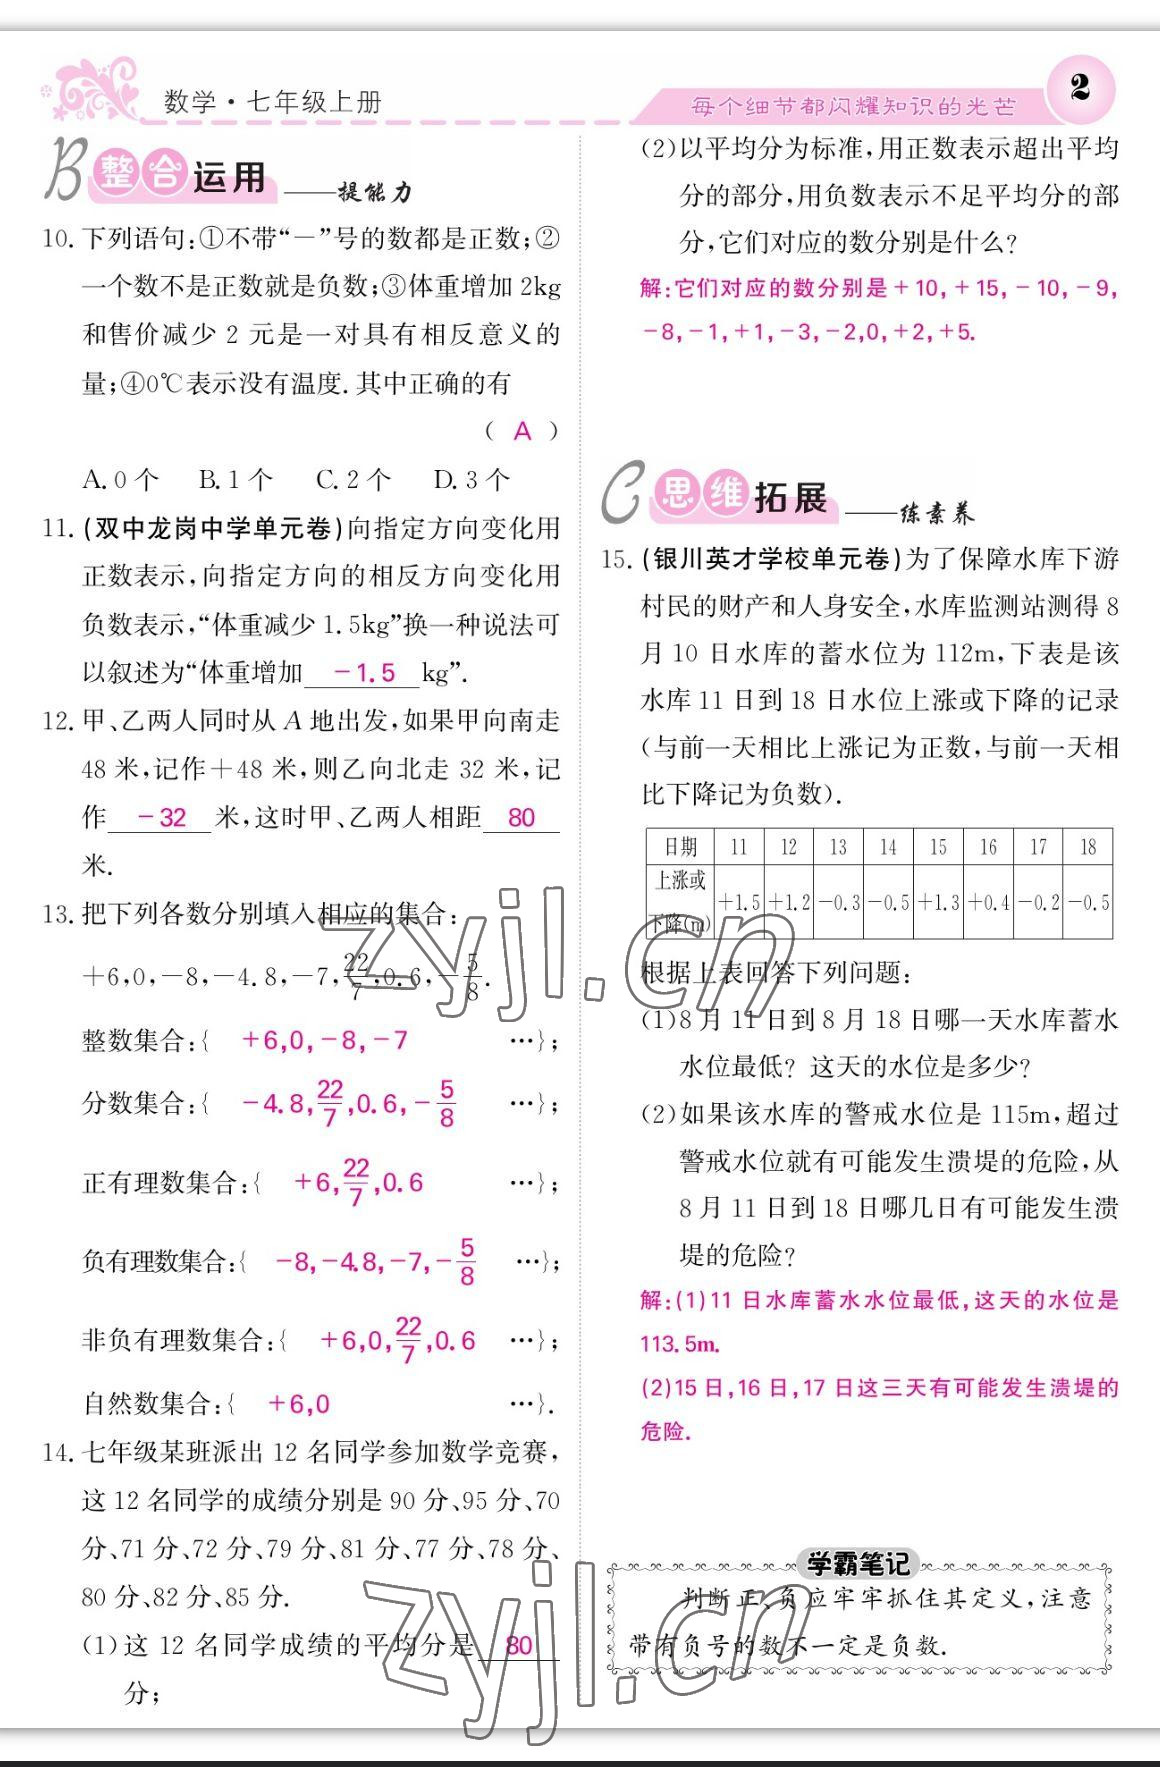 数学·七年级上册
每个细节都闪耀知识的光芒
2
B 整合运用 ——提能力
10. 下列语句:①不带“－”号的数都是正数;②
一个数不是正数就是负数;③体重增加 2kg
和售价减少 2 元是一对具有相反意义的
量;④0℃表示没有温度. 其中正确的有
( A )
A. 0 个 B. 1 个 C. 2 个 D. 3 个
11. (双中龙岗中学单元卷)向指定方向变化用
正数表示,向指定方向的相反方向变化用
负数表示,“体重减少 1.5kg”换一种说法可
以叙述为“体重增加 －1.5 kg”.
12. 甲、乙两人同时从 A 地出发,如果甲向南走
48 米,记作＋48 米,则乙向北走 32 米,记
作 －32 米,这时甲、乙两人相距 80
米.
13. 把下列各数分别填入相应的集合:
＋6,0,－8,－4.8,－7,22/7,0.6,－5/8.
整数集合:{ ＋6,0,－8,－7 …};
分数集合:{ －4.8,22/7,0.6,－5/8 …};
正有理数集合:{ ＋6,22/7,0.6 …};
负有理数集合:{ －8,－4.8,－7,－5/8 …};
非负有理数集合:{ ＋6,0,22/7,0.6 …};
自然数集合:{ ＋6,0 …}.
14. 七年级某班派出 12 名同学参加数学竞赛,
这 12 名同学的成绩分别是 90 分、95 分、70
分、71 分、72 分、79 分、81 分、77 分、78 分、
80 分、82 分、85 分.
(1)这 12 名同学成绩的平均分是 80
分;
(2)以平均分为标准,用正数表示超出平均
分的部分,用负数表示不足平均分的部
分,它们对应的数分别是什么?
解:它们对应的数分别是＋10,＋15,－10,－9,
－8,－1,＋1,－3,－2,0,＋2,＋5.
C 思维拓展 ——练素养
15. (银川英才学校单元卷)为了保障水库下游
村民的财产和人身安全,水库监测站测得 8
月 10 日水库的蓄水位为 112m,下表是该
水库 11 日到 18 日水位上涨或下降的记录
(与前一天相比上涨记为正数,与前一天相
比下降记为负数).
日期 11 12 13 14 15 16 17 18
上涨或
下降(m) ＋1.5 ＋1.2 －0.3 －0.5 ＋1.3 ＋0.4 －0.2 －0.5
根据上表回答下列问题:
(1)8 月 11 日到 8 月 18 日哪一天水库蓄水
水位最低? 这天的水位是多少?
(2)如果该水库的警戒水位是 115m,超过
警戒水位就有可能发生溃堤的危险,从
8 月 11 日到 18 日哪几日有可能发生溃
堤的危险?
解:(1)11 日水库蓄水水位最低,这天的水位是
113.5m.
(2)15 日,16 日,17 日这三天有可能发生溃堤的
危险.
学霸笔记
判断正、负应牢牢抓住其定义,注意
带有负号的数不一定是负数.
zyjl.cn
zyjl.cn